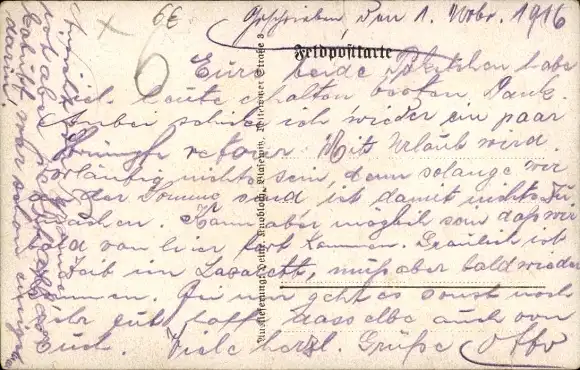 6E
Geschrieben den 1. Novbr. 1916
Feldpostkarte
Eure beide Paketchen habe
ich heute erhalten besten Dank.
Anbei schicke ich wieder ein paar
Strümpfe retour. Mit Urlaub wird
vorläufig nichts sein, denn solange wir
an der Somme sind ist damit nichts zu
machen. Kann aber möglich sein daß wir
bald von hier fort kommen. ist
Zeit im Lazarett, muß aber bald wieder
kommen. Bei mir geht es sonst noch
sehr gut hoffe dasselbe auch von
euch. Viele herzl. Grüße Otto
Auslieferung: Heinr. Knobloch, Blasewitz, Striesener Strasse 3.
ist aber
war schon
darin.